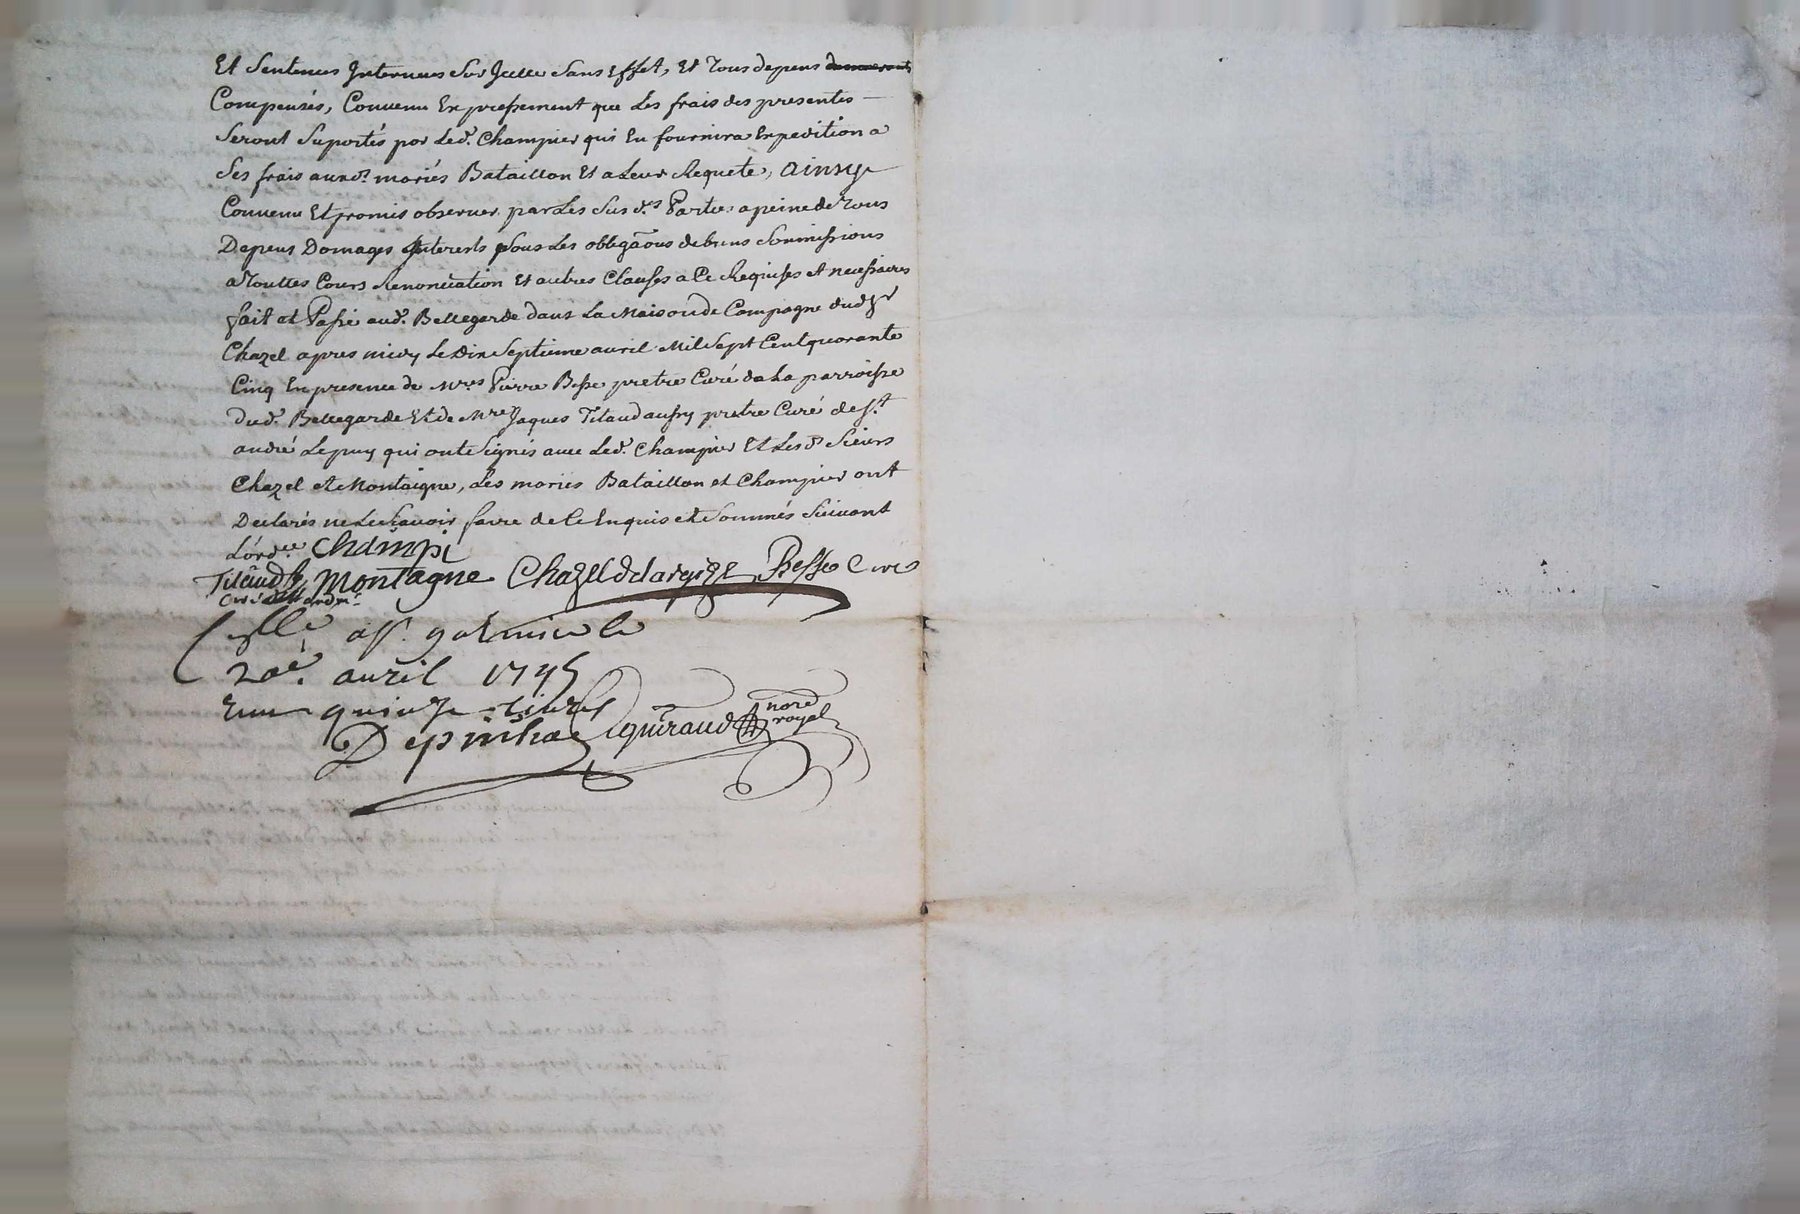 Et Sentences Intervenues Sur Icelle Sans Effet, Et Tous depens demeurants
Compensés, Convenu Expressement que Les frais des presentes
Seront Suportés par Led. Champier qui En fournira Expedition a
Ses frais auxds. mariés Bataillon Et a Leur Requete, Ainsy
Convenu Et promis observer par Les Susd.s Parties a peine de Tous
Depens Domages Interests Sous Les obligaons de biens Sommissions
a Toutes Cours Renonciation Et autres Clauses a Ce Requises et necessaires
fait et Passé aud. Bellegarde dans La Maison de Campagne dud. Sr
Chazel apres midy Le Dix Septieme avril Mil Sept Cent quarante
Cinq En presence de Mres Pierre Besse pretre Curé de La parroisse
dud. Bellegarde Et de Mre Jaques Titaud aussy pretre Curé de St.
andré Le puy qui ont Signés avec Led. Champier Et Lesd. Sieurs
Chazel et Montaigne, Les mariés Bataillon et Champier ont
Declarés ne Le Scavoir faire de Ce Enquis et Sommés Suivant
L'ordce Champi
Titaud Montagne Chazel Besse Curé
Curé de St andré
Cllé a St. galmier le
20e. avril 1745
Reçu quinze livres
Depinhac Guiraud nore
royal